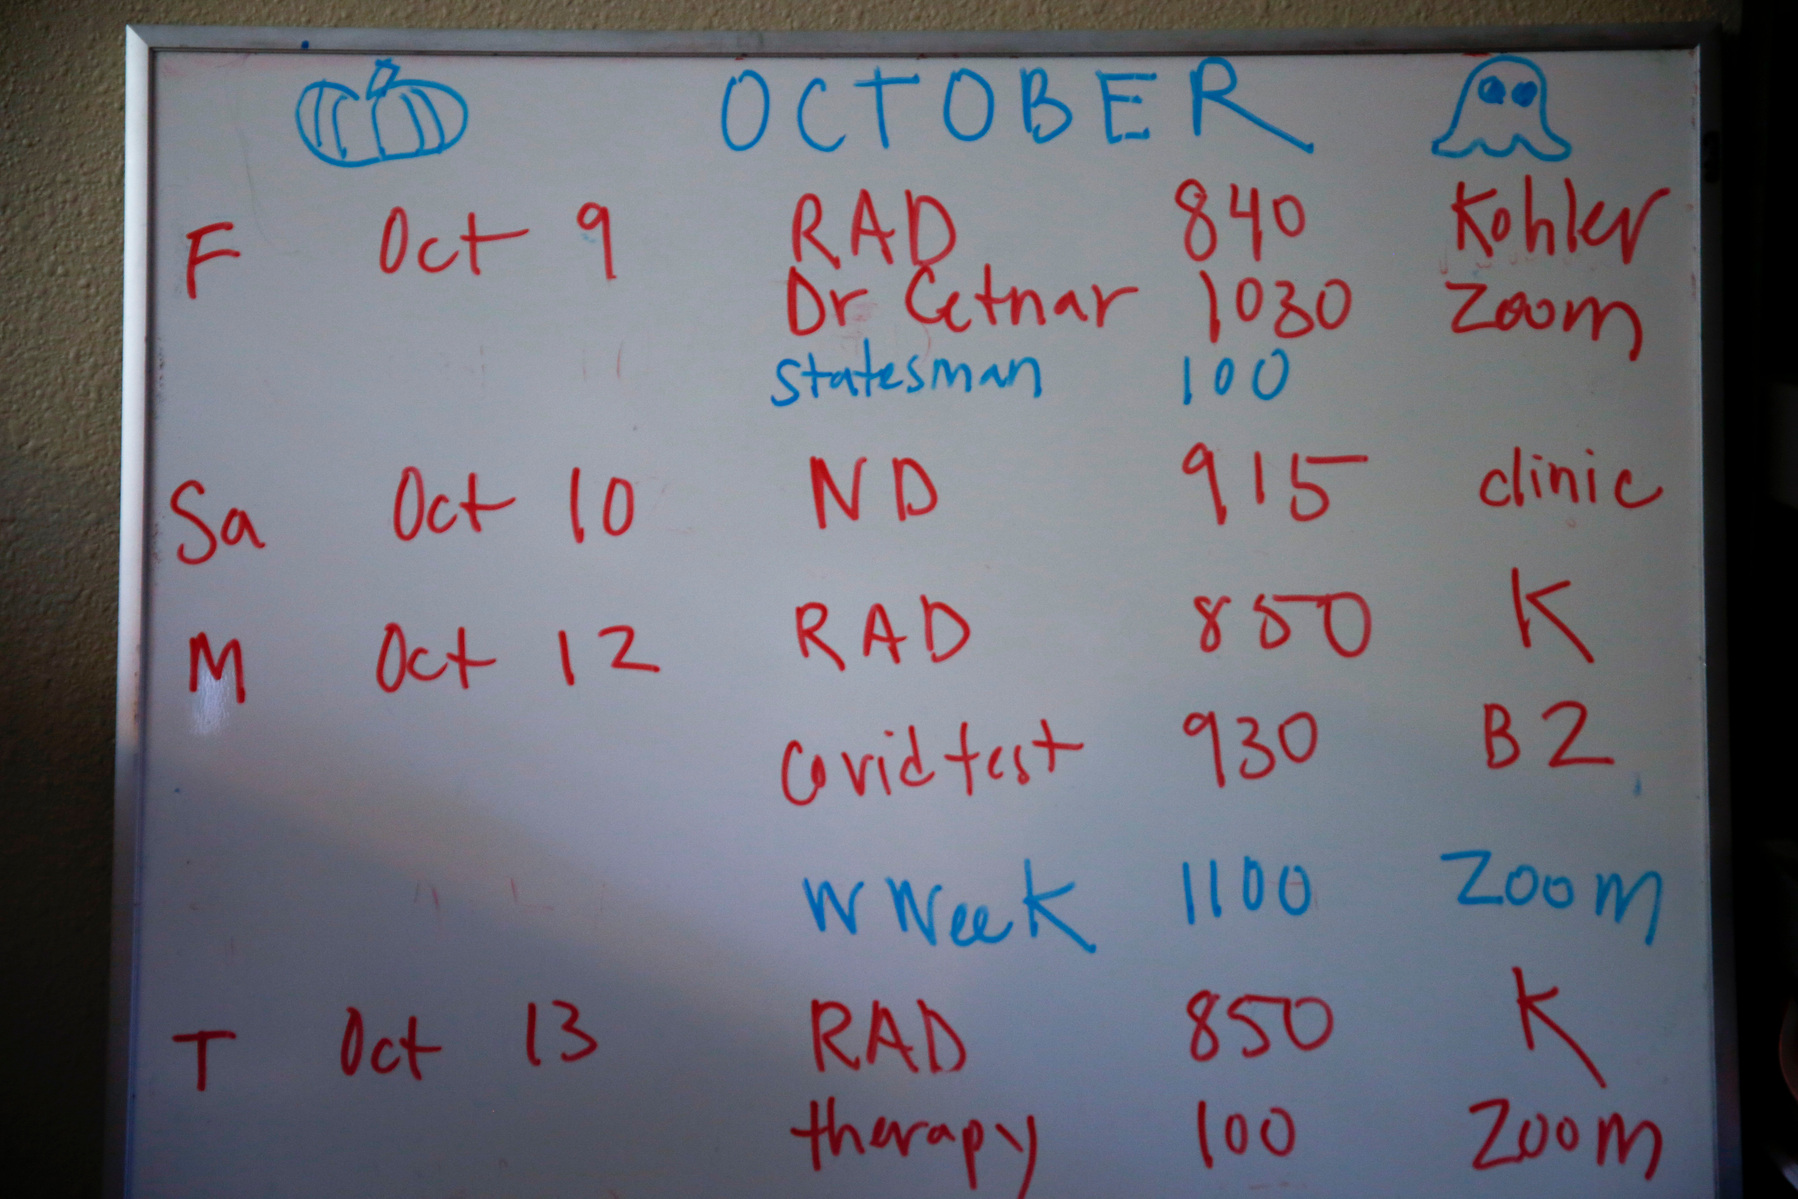 OCTOBER
F Oct 9 RAD 840 Kohler
Dr Cetnar 1030 Zoom
statesman 100
Sa Oct 10 ND 915 clinic
M Oct 12 RAD 850 K
Covid test 930 B2
W Week 1100 Zoom
T Oct 13 RAD 850 K
therapy 100 Zoom